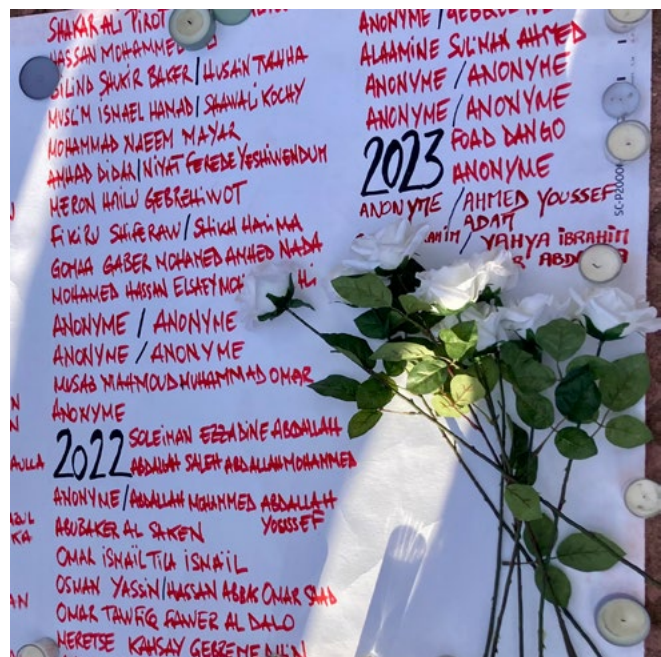 SHAKAR ALI PIROT
HASSAN MOHAMMED
BILIND SHUKIR BAKER / HUSAIN TANHA
MUSLIM ISMAEL HAMAD / SHAWALI KOCHY
MOHAMMAD NAEEM MAYAR
AMHAD DIDAR / NIYAT FEREDE YESHIWENDUM
MERON HAILU GEBREHIWOT
FIKIRU SHIFERAW / SHIKH HAIMA
GOMAA GABER MOHAMED AMHED NADA
MOHAMED HASSAN
ANONYME / ANONYME
ANONYME / ANONYME
MUSAB MAHMOUD MUHAMMAD OMAR
ANONYME
2022 SOLEIMAN EZZADINE ABDALLAH
ABDALLAH SALEH ABDALLAH MOHAMMED
ANONYME / ABDALLAH MOHAMMED ABDALLAH
YOUSSEF
ABUBAKER AL SAKEN
OMAR ISMAIL TILA ISMAÏL
OSMAN YASSIN / HASSAN ABBAK OMAR SAAD
OMAR TAWFIQ FAWER AL DALO
MERETSE KAHSAY
ANONYME /
ALAAMINE SULIMAN AHMED
ANONYME / ANONYME
ANONYME / ANONYME
2023 FOAD DANGO
ANONYME
ANONYME / AHMED YOUSSEF
ADAM
/ YAHYA IBRAHIM
AULLA
KA
SC-P2000